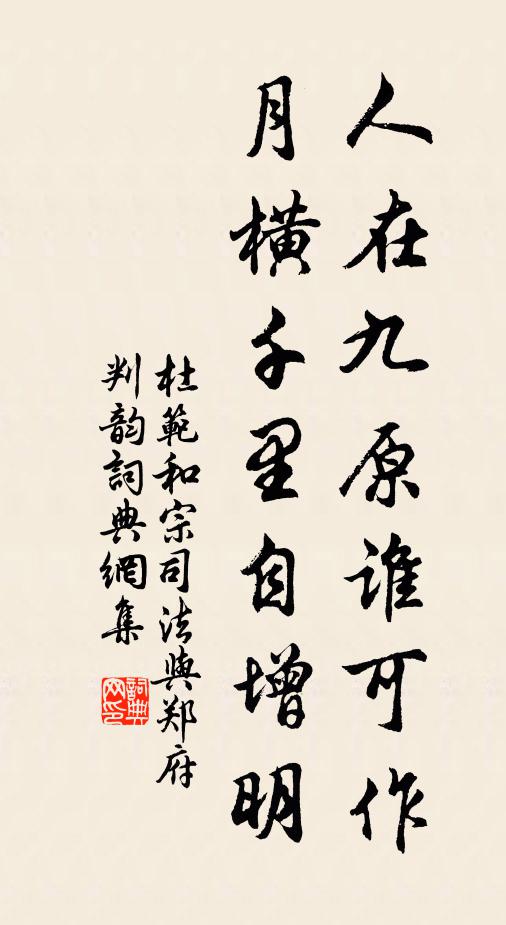 人在九原谁可作
月横千里自增明
杜範和宗司法與郑府
判韵詞典網集
詞典網印